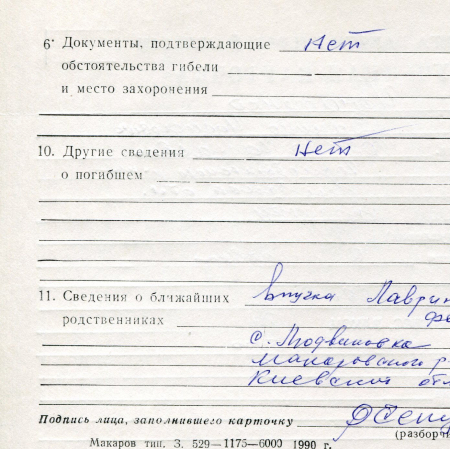 6· Документы, подтверждающие Нет
обстоятельства гибели
и место захоронения
10. Другие сведения Нет
о погибшем
11. Сведения о ближайших Внучка Лаврин
родственниках
с. Людвиновка
Макаровского р
Киевской
Подпись лица, заполнившего карточку
(разбор
Макаров тип. З. 529—1175—6000 1990 г.